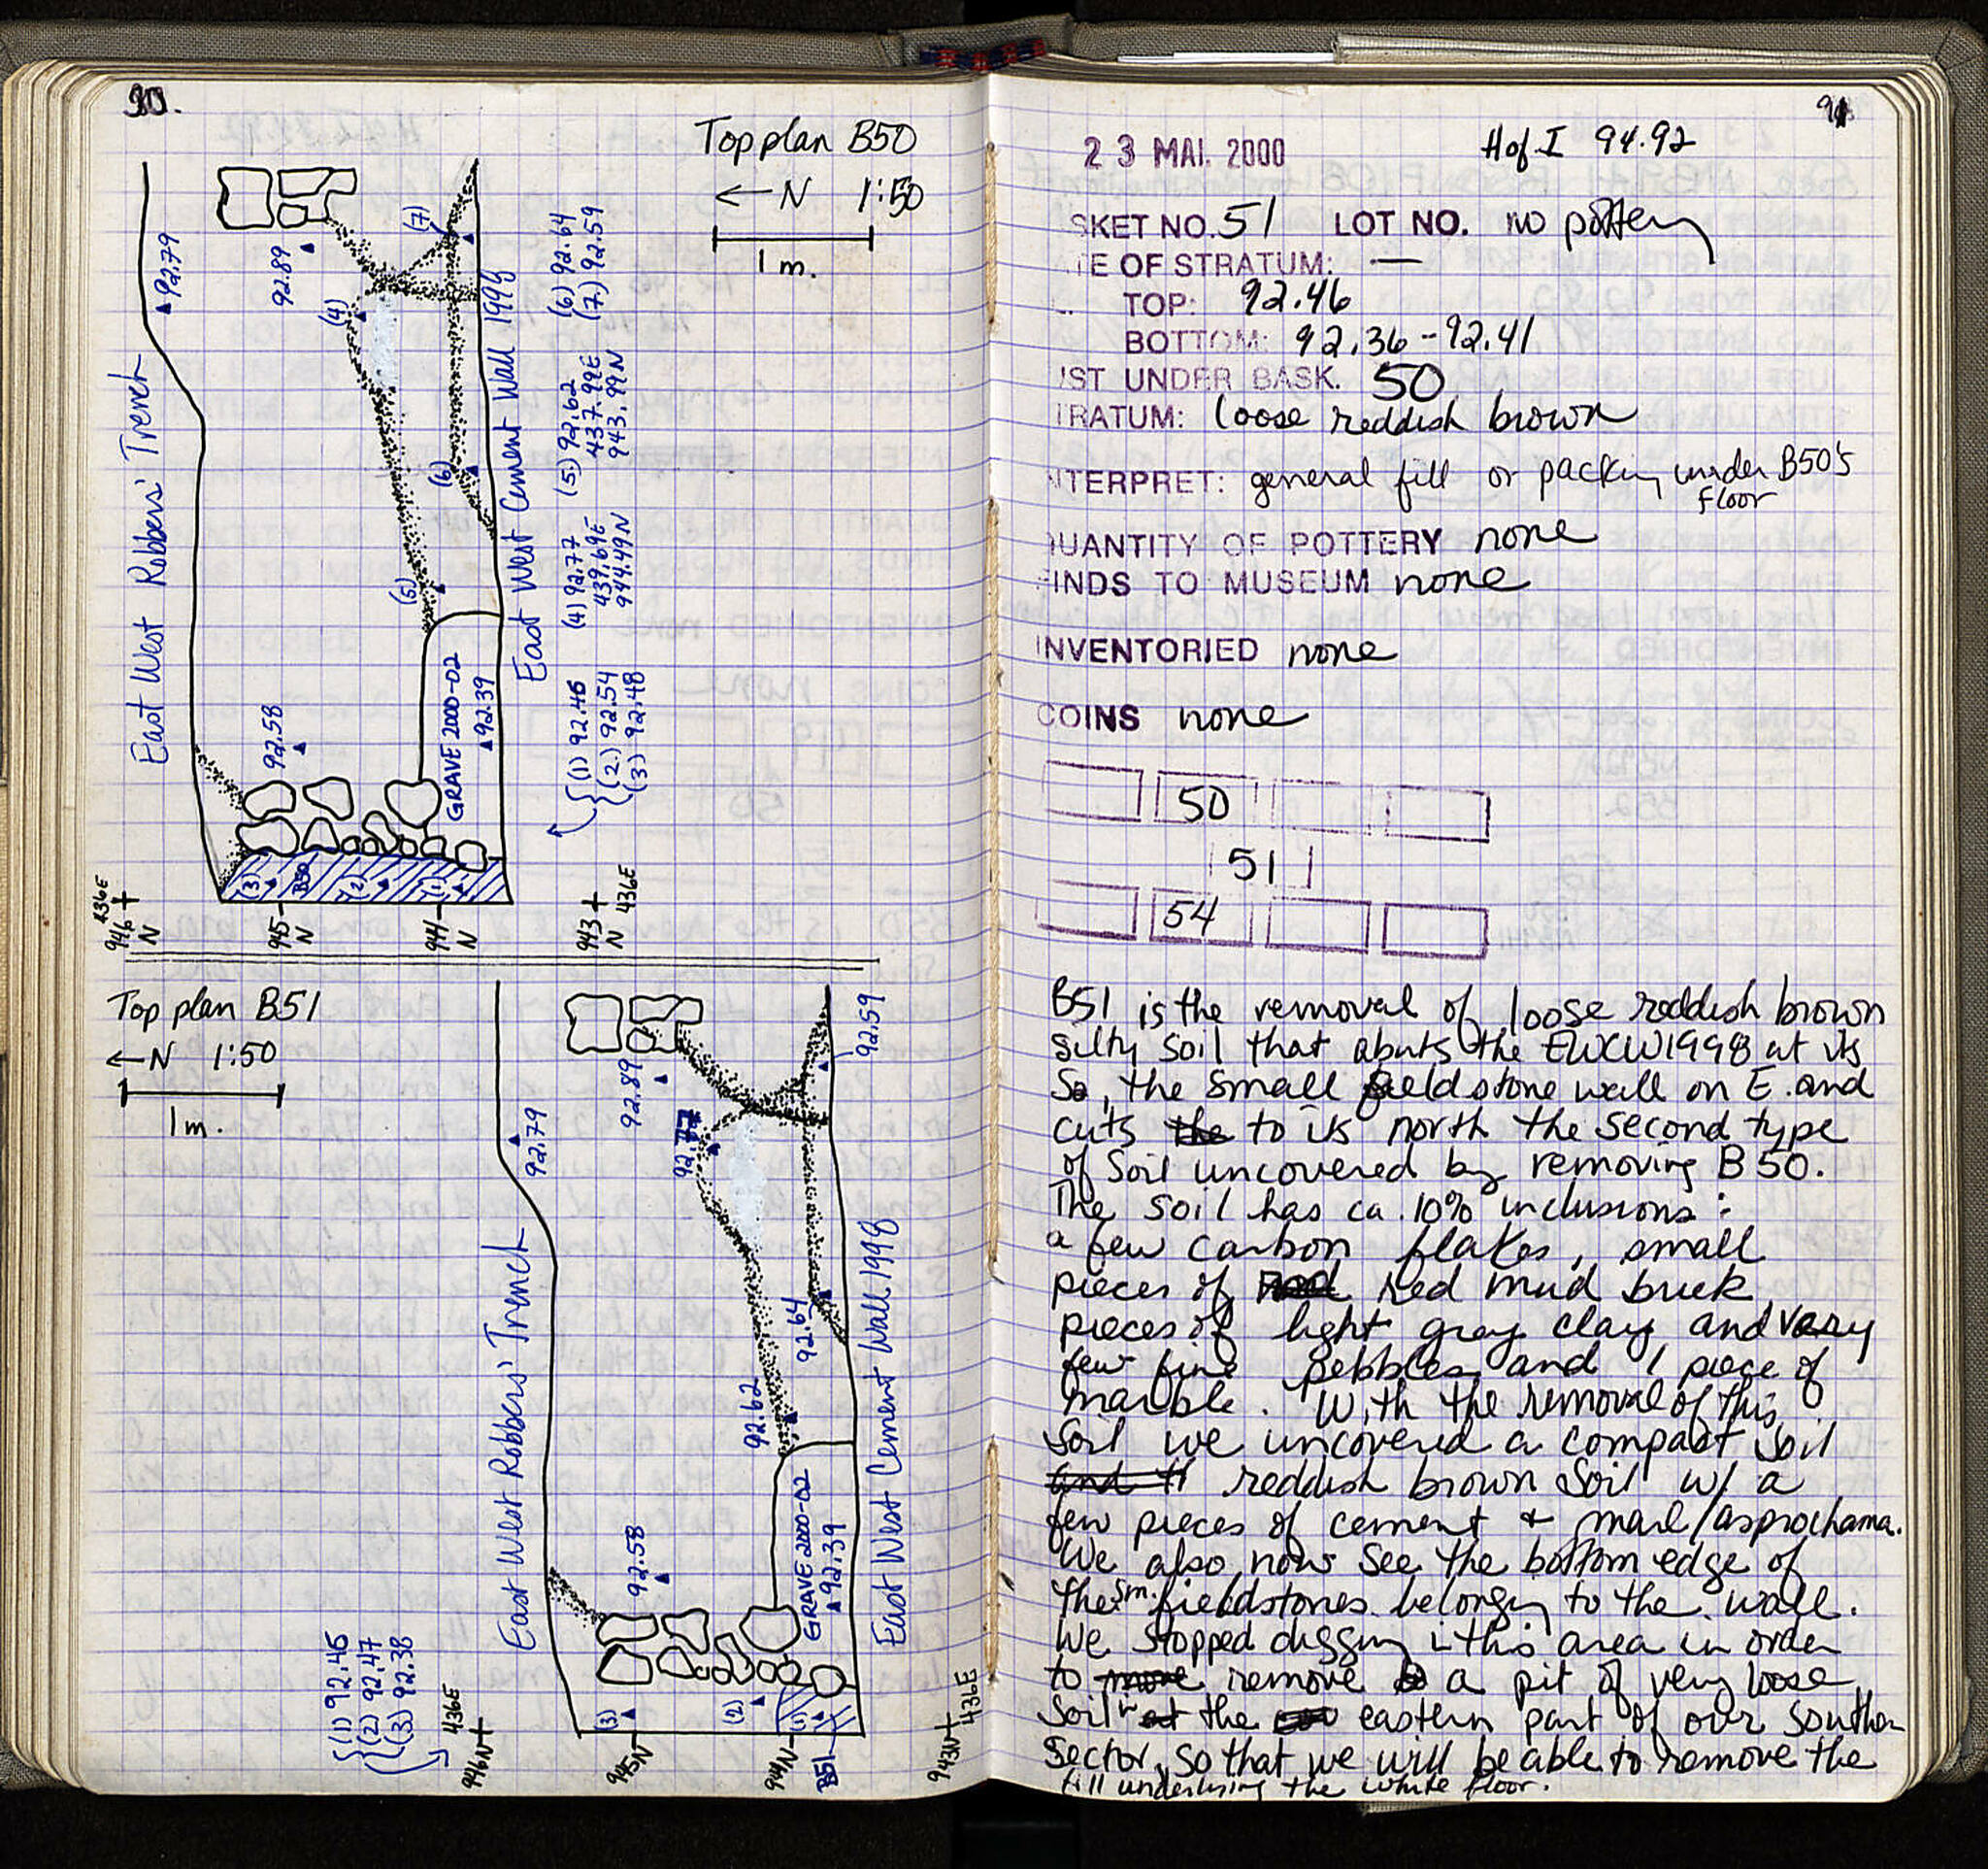 90.
Top plan B50
← N 1:50
1 m.
East West Robbers' Trench
92.79
92.89
(4)
(7)
(6)
(5)
92.58
GRAVE 2000-02
92.39
East West Cement Wall 1998
(3)
B50
(2)
(1)
{(1) 92.46
(2) 92.54
(3) 92.48
(4) 92.77
439.69E
944.49N
(5) 92.62
437.99E
943.99N
(6) 92.64
(7) 92.59
436E
946 N
945 N
944 N
943 N
436E
Top plan B51
← N 1:50
1 m.
East West Robbers' Trench
92.79
92.89
92.77
92.59
92.64
92.62
92.58
GRAVE 2000-02
92.39
East West Cement Wall 1998
(3)
(2)
(1)
B51
{(1) 92.45
(2) 92.47
(3) 92.38
436E
946N
945N
944N
943N
436E
91
23 MAI. 2000
H of I 94.92
SKET NO. 51 LOT NO. no pottery
TE OF STRATUM: —
TOP: 92.46
BOTTOM: 92.36-92.41
ST UNDER BASK. 50
TRATUM: loose reddish brown
NTERPRET: general fill or packing under B50's
floor
UANTITY OF POTTERY none
INDS TO MUSEUM none
INVENTORIED none
COINS none
50
51
54
B51 is the removal of loose reddish brown
silty soil that abuts the EWCW1998 at its
So, the small fieldstone wall on E. and
cuts the to its north the second type
of Soil uncovered by removing B50.
The soil has ca. 10% inclusions:
a few carbon flakes, small
pieces of Red mud brick
pieces of light gray clay and very
few fine pebbles, and 1 piece of
marble. With the removal of this
Soil we uncovered a compact soil
and reddish brown Soil w/ a
few pieces of cement + marl/asprochama.
We also now see the bottom edge of
the sm. fieldstones belonging to the wall.
We stopped digging in this area in order
to move remove a pit of very loose
Soil in at the eastern part of our southern
Sector, so that we will be able to remove the
fill underlying the white floor.